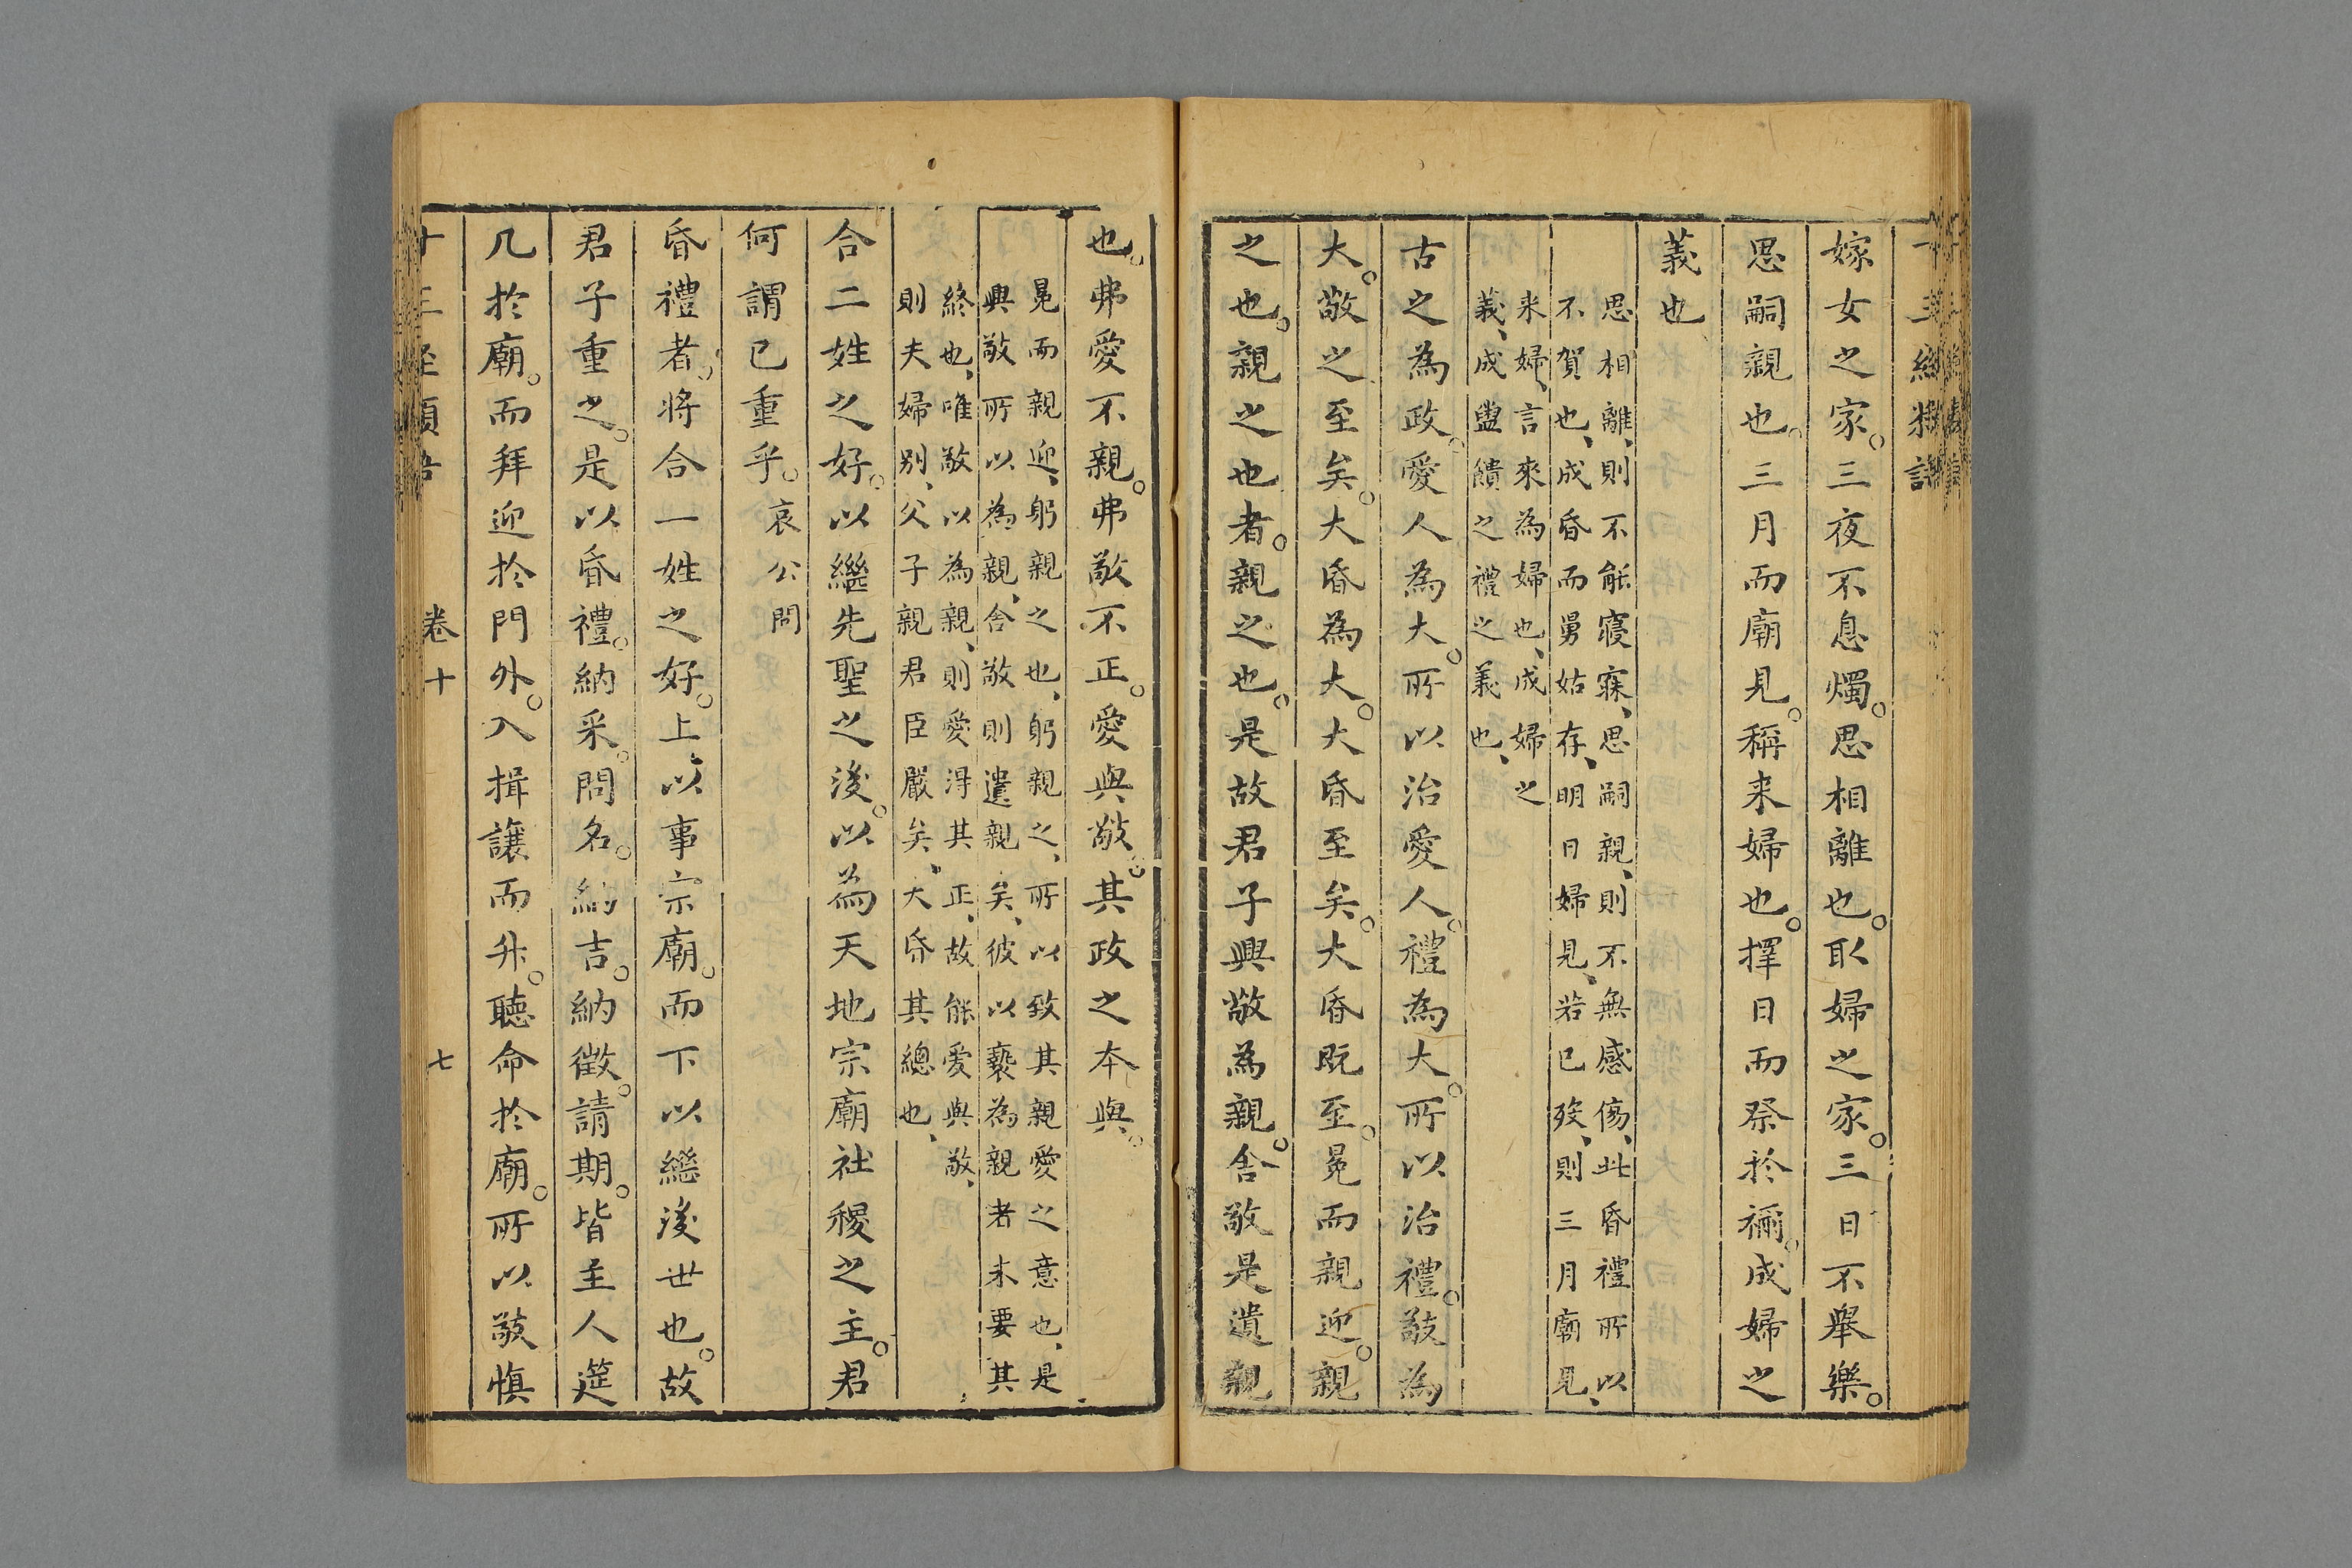 嫁女之家。三夜不息燭。思相離也。取婦之家。三日不舉樂。
思嗣親也。三月而廟見。稱来婦也。擇日而祭於禰。成婦之
義也
思相離、則不能寢寐、思嗣親、則不無感傷、此昏禮所以
不賀也、成昏而舅姑存、明日婦見、若已歿、則三月廟見、
来婦、言來為婦也、成婦之
義、成盥饋之禮之義也、
古之為政。愛人為大。所以治愛人。禮為大。所以治禮。敬為
大。敬之至矣。大昏為大。大昏至矣。大昏既至。冕而親迎。親
之也。親之也者。親之也。是故君子興敬為親。舍敬是遺親
也。弗愛不親。弗敬不正。愛與敬。其政之本與。
冕而親迎、躬親之也、躬親之、所以致其親愛之意也、是
興敬所以為親、舍敬則遺親矣、彼以褻為親者未要其
終也、唯敬以為親、則愛得其正、故能愛與敬、
則夫婦别、父子親君臣嚴矣、大昏其總也、
合二姓之好。以繼先聖之後。以為天地宗廟社稷之主。君
何謂已重乎。哀公問
昏禮者。將合一姓之好。上以事宗廟。而下以繼後世也。故
君子重之。是以昏禮。納采。問名。納吉。納徵。請期。皆主人筵
几於廟。而拜迎於門外。入揖讓而升。聽命於廟。所以敬慎
卷十
七